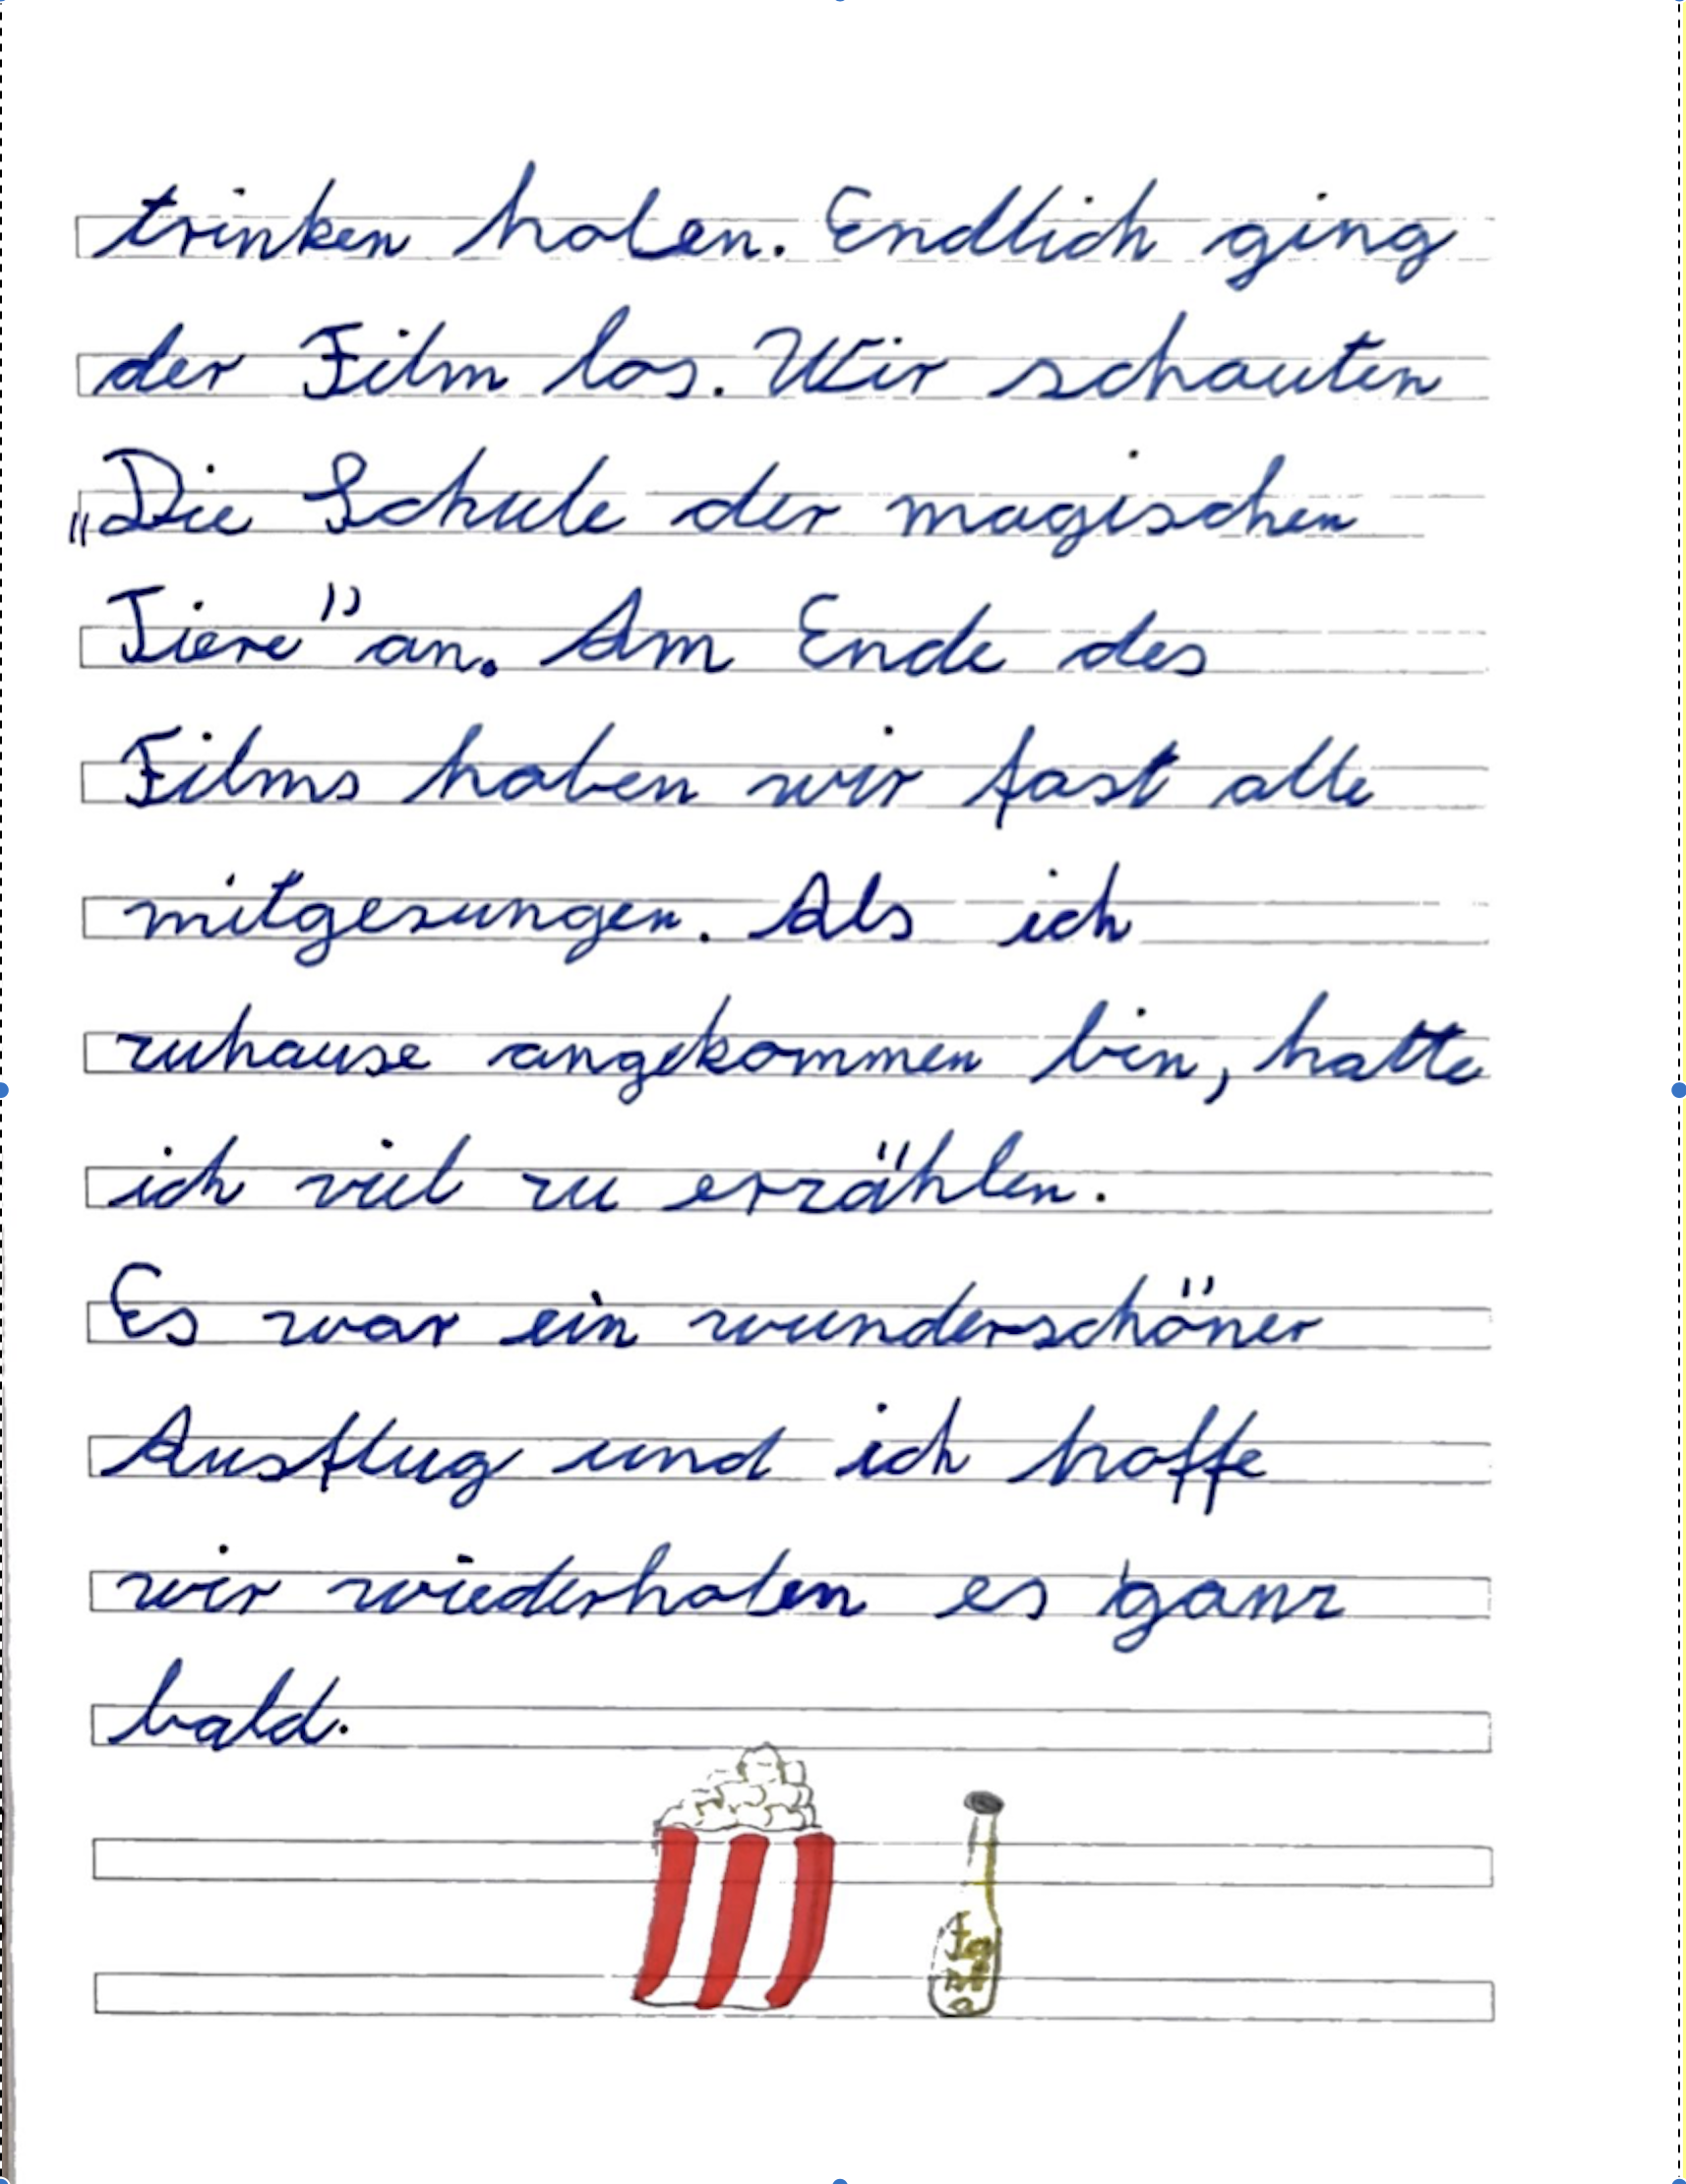 trinken holen. Endlich ging
der Film los. Wir schauten
„Die Schule der magischen
Tiere" an. Am Ende des
Films haben wir fast alle
mitgesungen. Als ich
zuhause angekommen bin, hatte
ich viel zu erzählen.
Es war ein wunderschöner
Ausflug und ich hoffe
wir wiederholen es ganz
bald.
Fa
nt
a